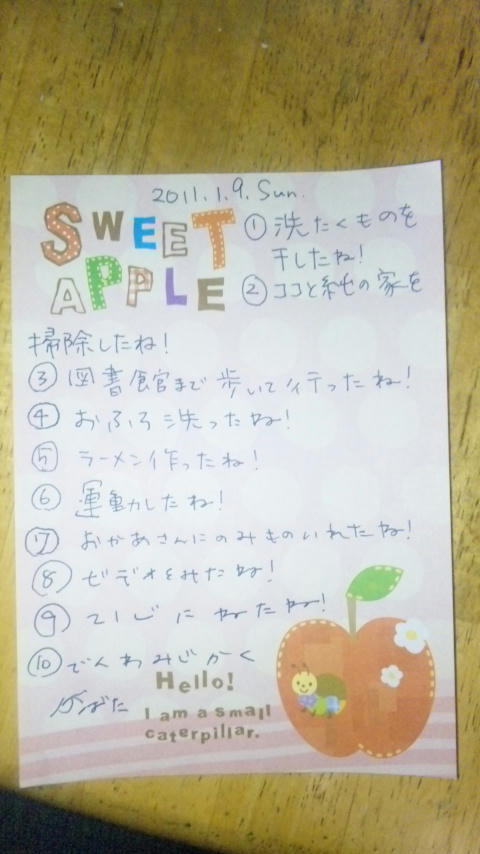 2011.1.9. Sun.
SWEET
APPLE
① 洗たくものを
干したね!
② ココと純也の家を
掃除したね!
③ 図書館まで歩いて行ったね!
④ おふろ洗ったね!
⑤ ラーメン作ったね!
⑥ 運動したね!
⑦ おかあさんにのみものいれたね!
⑧ ビデオをみたね!
⑨ てじにねたね!
⑩ でんわみじかく
がんばた
Hello!
I am a small
caterpillar.